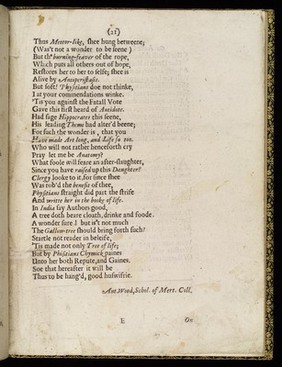 (21)
Thus Meteor-like, shee hung betweene;
(Was't not a wonder to be seene)
But th' burning-feaver of the rope,
Which puts all others out of hope,
Restores her to her to selfe; shee is
Alive by Antiperistasis.
But soft! Physitians doe not thinke,
I at your commendations winke.
'Tis you against the Fatall Vote
Gave this first heard of Antidote.
Had sage Hippocrates this seene,
His leading Theme had alter'd beene;
For such the wonder is, that you
Have made Art long, and Life so too.
Who will not rather henceforth cry
Pray let me be Anatomy?
What foole will feare an after-slaughter,
Since you have raised up this Daughter?
Clergy looke to it, for since shee
Was rob'd the benefit of thee,
Physitians straight did part the strife
And write her in the booke of life.
In India say Authors good,
A tree doth beare cloath, drinke and foode.
A wonder sure! but is't not much
The Gallow-tree should bring forth such?
Startle not reader in beleife,
'Tis made not only Tree of life;
But by Phisitians Chymick paines
Unto her both Repute, and Gaines.
Soe that hereafter it will be
Thus to be hang'd, good huswifrie.
Ant. Wood, Schol. of Mert. Coll.
E On